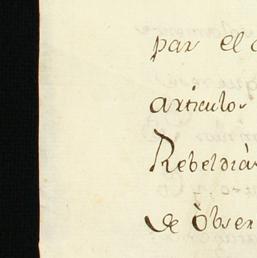 par el
articulo
Rebeldià
de òbser